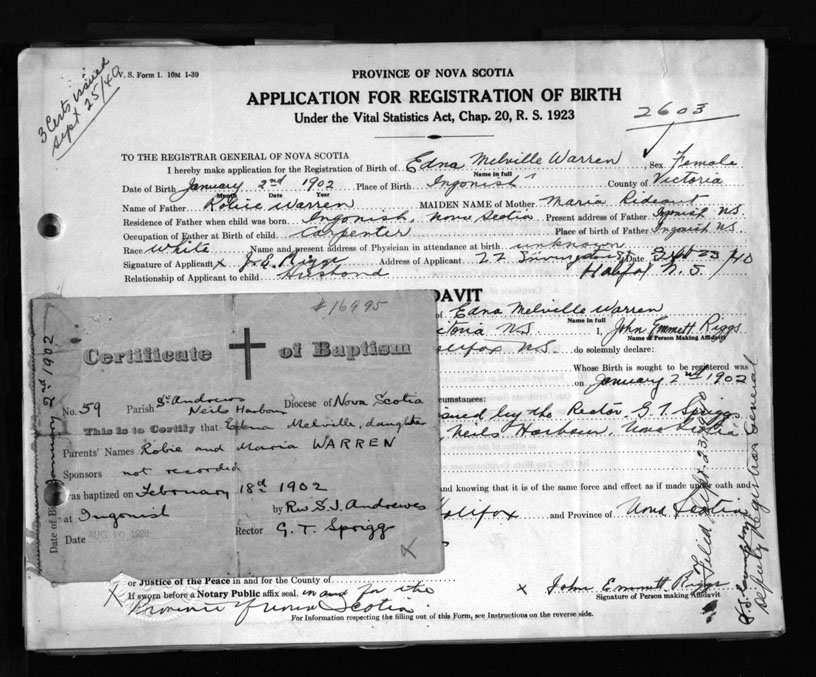 3 Certs issued
Sept. 25/40
V. S. Form 1. 10M 1-39
PROVINCE OF NOVA SCOTIA
APPLICATION FOR REGISTRATION OF BIRTH
Under the Vital Statistics Act, Chap. 20, R. S. 1923
2603
TO THE REGISTRAR GENERAL OF NOVA SCOTIA
I hereby make application for the Registration of Birth of Edna Melville Warren, Sex Female
Name in full
Date of Birth January 2nd 1902 Place of Birth Ingonish County of Victoria
Month Date Year
Name of Father Robie Warren MAIDEN NAME of Mother Maria Rideout
Residence of Father when child was born Ingonish, Nova Scotia Present address of Father Ingonish N.S.
Occupation of Father at Birth of child. Carpenter Place of Birth of Father Ingonish N.S.
Race White Name and present address of Physician in attendance at birth unknown
Signature of Applicant x J. E. Riggs Address of Applicant 22 Date Sept 23/40
Relationship of Applicant to child Husband Halifax N.S.
DAVIT
of Edna Melville Warren
Name in full
toria N.S. I, John Emmett Riggs
Name of Person Making Affidavit
alifax N.S. do solemnly declare:
Whose Birth is sought to be registered was
on January 2nd 1902
cumstances:
sued by the Rector G. T. Sprigg
, Neils Harbour, Nova Scotia
and knowing that it is of the same force and effect as if made under oath and
alifax and Province of Nova Scotia
or Justice of the Peace in and for the County of
X If sworn before a Notary Public affix seal, in and for the
Province of Nova Scotia
x John Emmett Riggs
Signature of Person making Affidavit
For Information respecting the filling out of this Form, see Instructions on the reverse side.
Filed Sept. 23
Deputy Registrar General
#16995
Certificate of Baptism
No. 59 Parish St Andrews Neils Harbour Diocese of Nova Scotia
This is to Certify that Edna Melville, daughter
Parents' Names Robie and Maria WARREN
Sponsors not recorded
was baptized on February 18th 1902
at Ingonish by Rev. S. J. Andrewes
Date AUG 10 1940 Rector G. T. Sprigg
X
Date of Birth January 2nd 1902